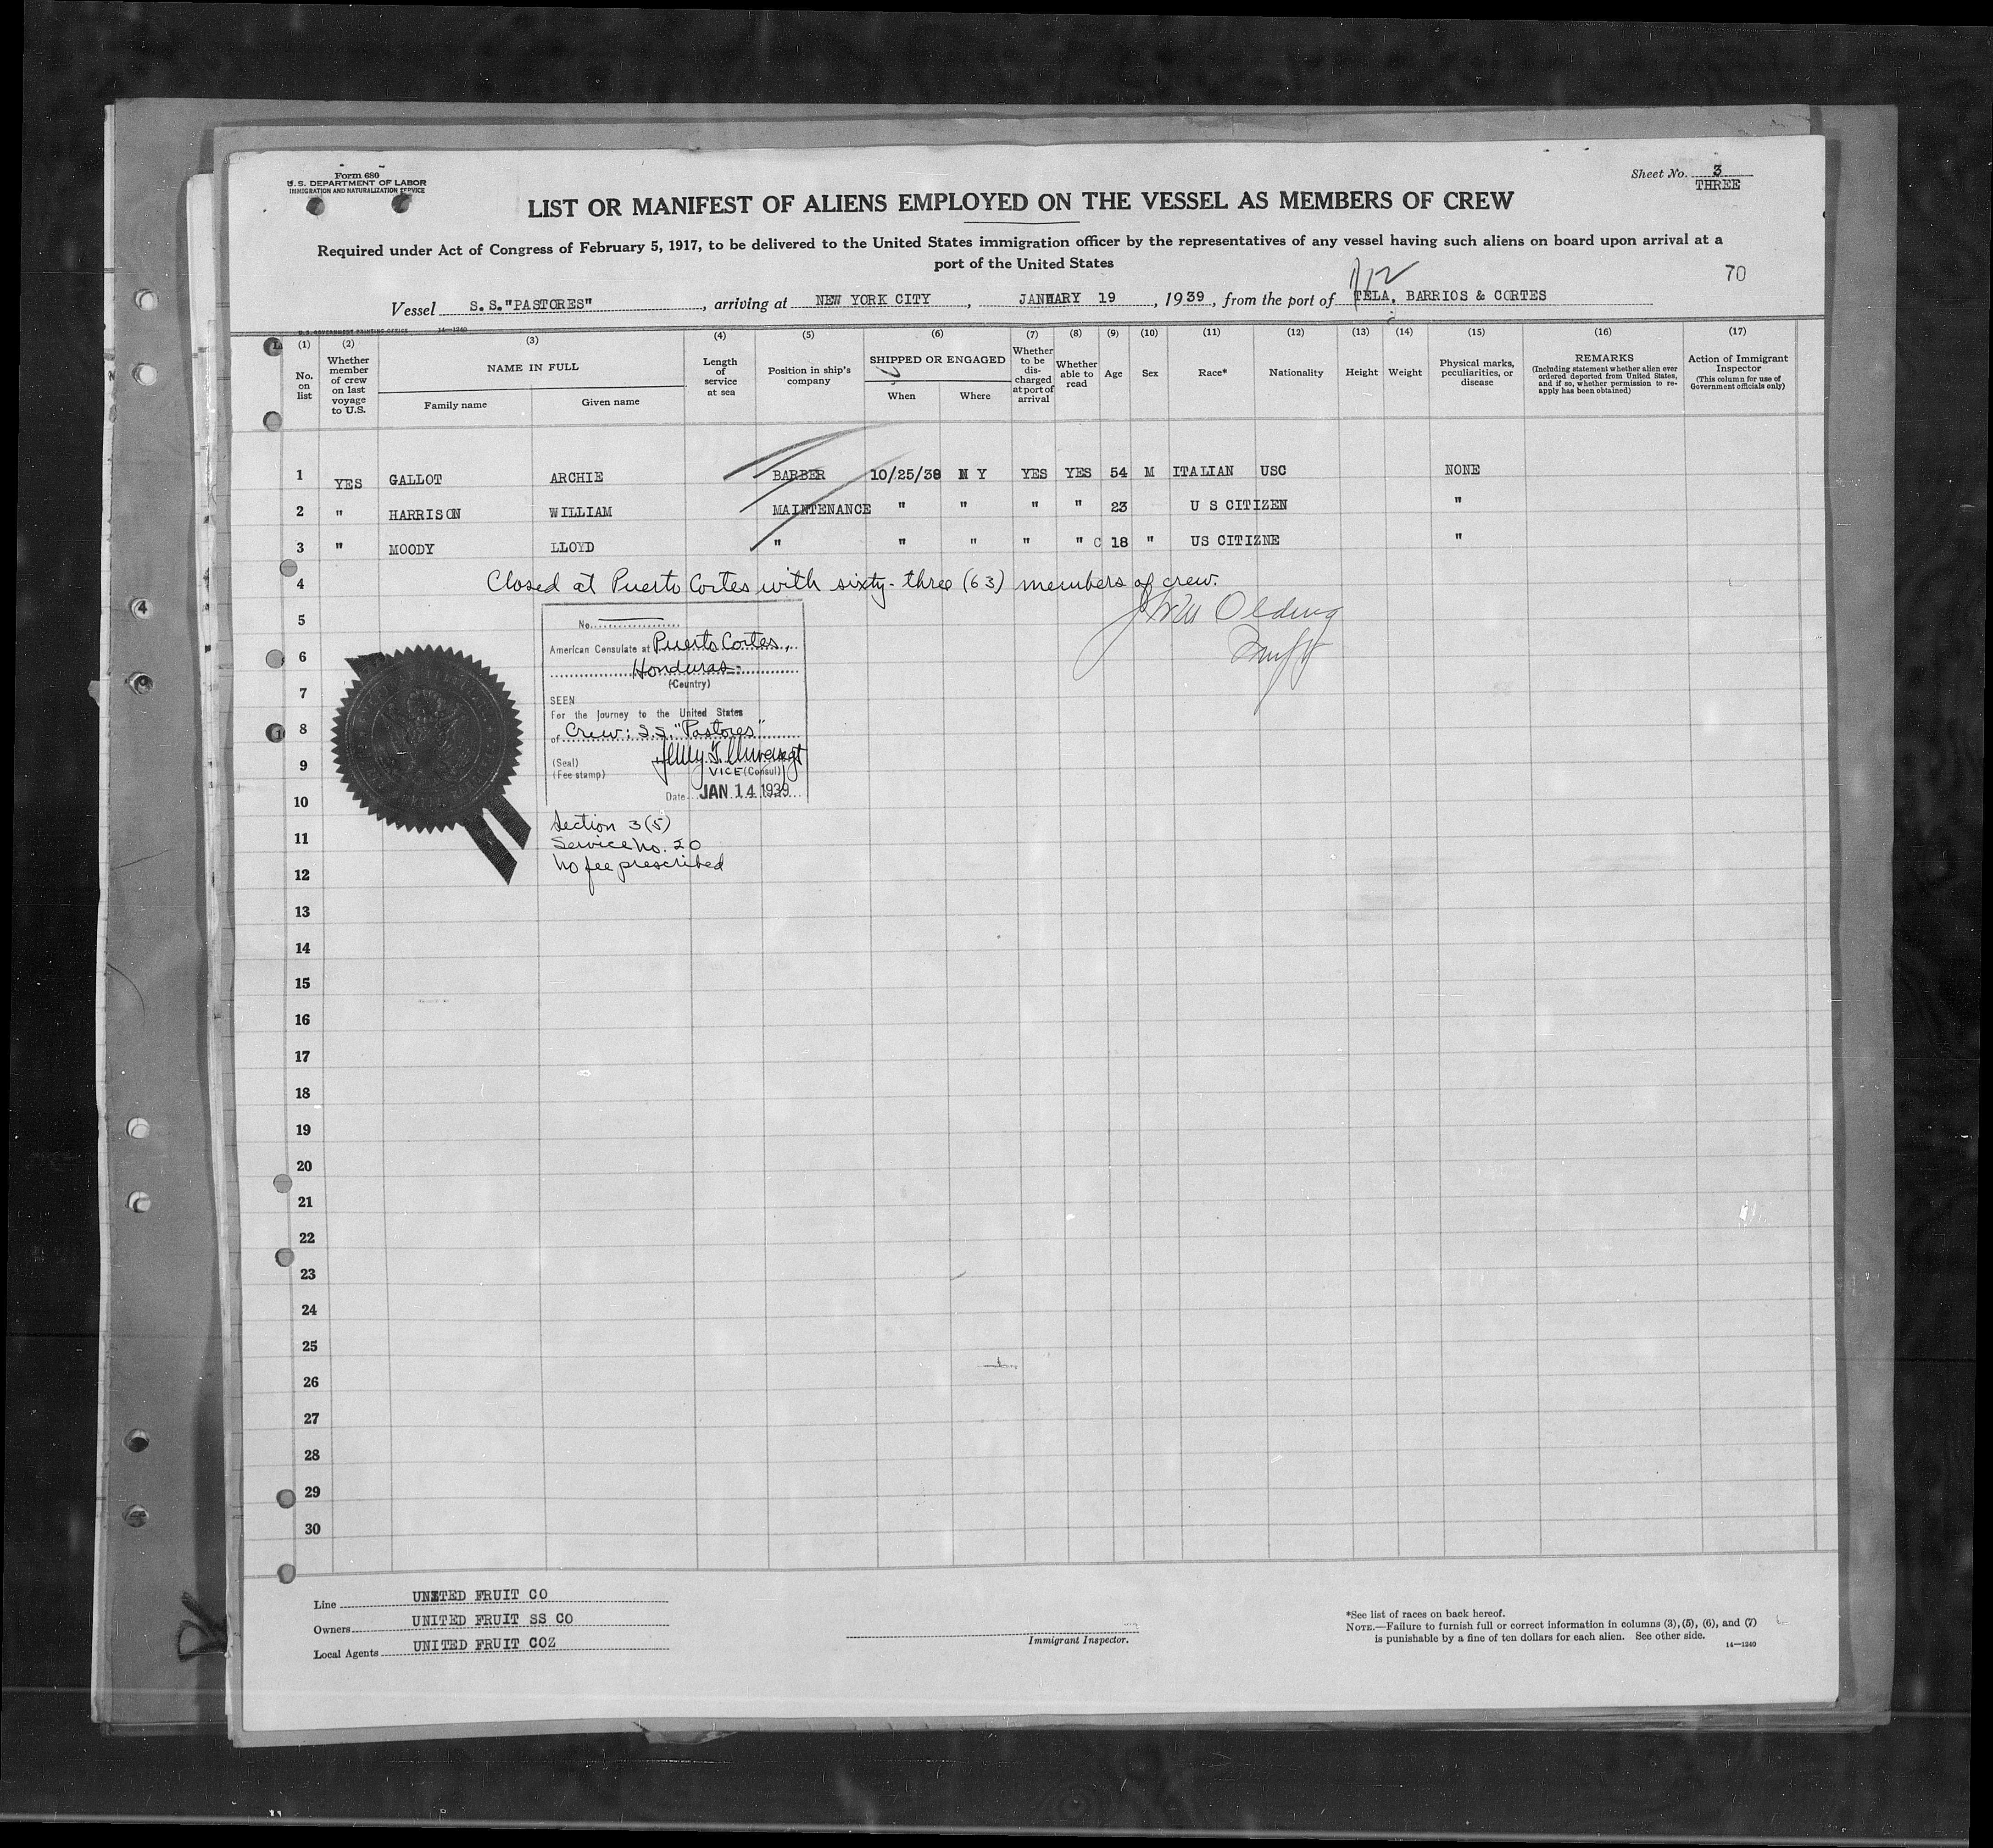 Form 680
U. S. DEPARTMENT OF LABOR
IMMIGRATION AND NATURALIZATION SERVICE
Sheet No. 3
THREE
LIST OR MANIFEST OF ALIENS EMPLOYED ON THE VESSEL AS MEMBERS OF CREW
Required under Act of Congress of February 5, 1917, to be delivered to the United States immigration officer by the representatives of any vessel having such aliens on board upon arrival at a
port of the United States
70
Vessel S.S."PASTORES", arriving at NEW YORK CITY, JANUARY 19, 1939, from the port of TELA, BARRIOS & CORTES
U. S. GOVERNMENT PRINTING OFFICE 14—1240
(1) (2) (3) (4) (5) (6) (7) (8) (9) (10) (11) (12) (13) (14) (15) (16) (17)
No. on list
Whether member of crew on last voyage to U.S.
NAME IN FULL
Family name
Given name
Length of service at sea
Position in ship's company
SHIPPED OR ENGAGED
When
Where
Whether to be discharged at port of arrival
Whether able to read
Age
Sex
Race*
Nationality
Height
Weight
Physical marks, peculiarities, or disease
REMARKS
(Including statement whether alien ever ordered deported from United States, and if so, whether permission to reapply has been obtained)
Action of Immigrant Inspector
(This column for use of Government officials only)
1 YES GALLOT ARCHIE BARBER 10/25/38 N Y YES YES 54 M ITALIAN USC NONE
2 " HARRISON WILLIAM MAINTENANCE " " " " 23 U S CITIZEN "
3 " MOODY LLOYD " " " " " C 18 " US CITIZNE "
4 Closed at Puerto Cortes with sixty-three (63) members of crew.
5
No.
American Consulate at Puerto Cortes,
6
Honduras.
(Country)
7
SEEN
For the journey to the United States
8
of Crew: S.S. "Pastores"
9
(Seal)
VICE (Consul)
(Fee stamp)
10
Date JAN 14 1939
Section 3(5)
11
Service No. 20
No fee prescribed
12
13
14
15
16
17
18
19
20
21
22
23
24
25
26
27
28
29
30
Line UNITED FRUIT CO
Owners UNITED FRUIT SS CO
Local Agents UNITED FRUIT COZ
Immigrant Inspector.
*See list of races on back hereof.
NOTE.—Failure to furnish full or correct information in columns (3), (5), (6), and (7)
is punishable by a fine of ten dollars for each alien. See other side.
14—1240